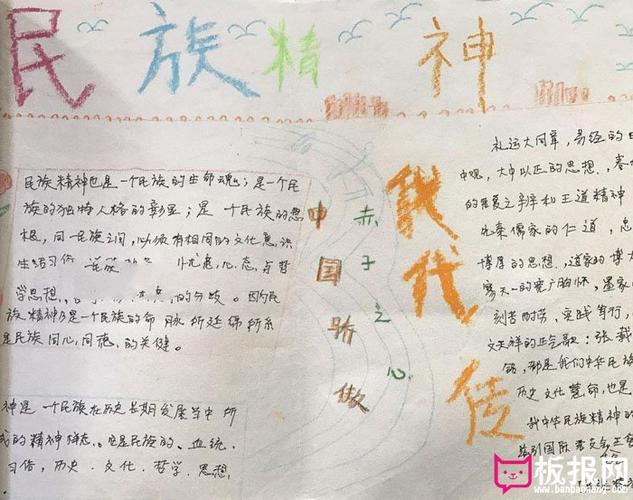 民族精神
民族精神也是一个民族的生命魂；是一个民
族的独特人格的彰显；是一个民族的思
根，同一民族之间，必须有相同的文化意识
生活习俗
学思想，的分歧。因为民
族精神乃是一个民族的命脉所延绵所系
是民族同心，同德，的关健。
神是一个民族在历史长期发展当中所
成的精神样态。也是民族的、血统、
习俗，历史、文化、哲学、思想，
中国骄傲
赤子之心
我代传
礼运大同章，易经的
中观，大中以正的思想，春
的王道精神
先秦儒家的仁道，忠
博厚的思想，道家的博大
寥天一的宽广胸怀，墨家
刻苦耐劳，实践笃行，
文天祥的正气歌：张载
铭，那是我们中华民族
历史文化慧命，也是
我中华民族精神的
板报网
www.banbaowang.com